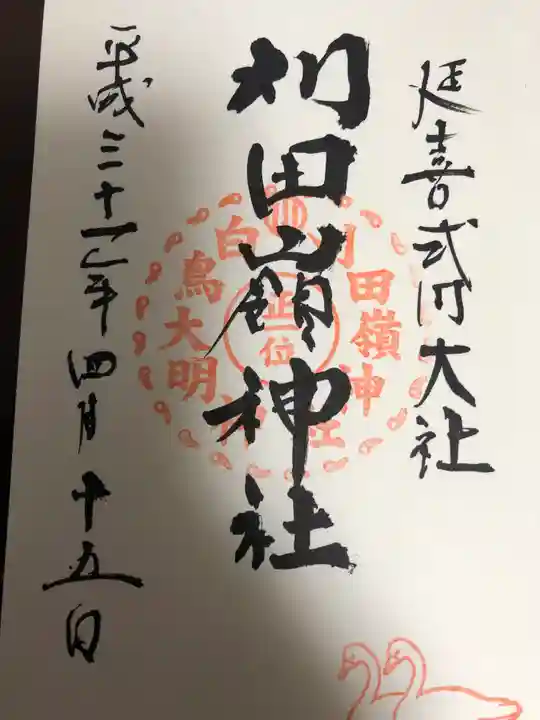 延喜式内大社
刈田嶺神社
平成三十一年四月十五日
刈田嶺神社
白鳥大明神
正一位